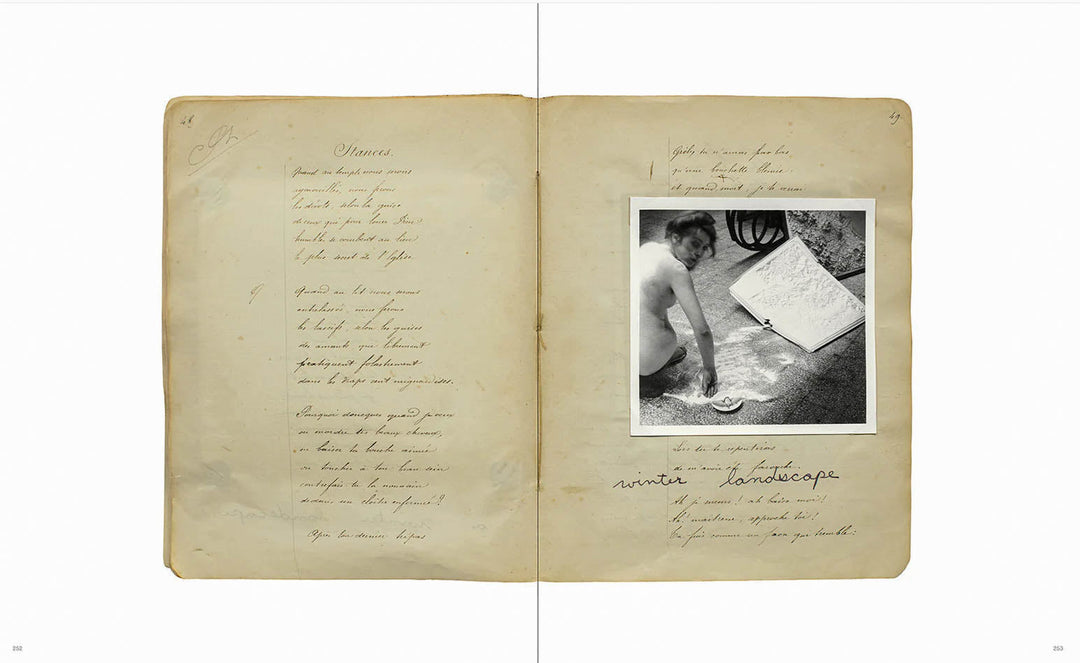 48
Stances.
Quand au temple nous serons
agenouillés, nous ferons
les dévots, selon la guise
de ceux qui pour louer Dieu
humbles se courbent au lieu
le plus secret de l'Eglise.
Quand au lit nous serons
entrelassés, nous ferons
les lascifs, selon les guises
des amants qui librement
pratiquent folastrement
dans les draps cent mignardises.
Pourquoi doncques quand je veux
ou mordre tes beaux cheveux,
ou baiser ta bouche aimée
ou toucher à ton beau sein
contrefais-tu la nonnain
dedans un cloître enfermé?
Après ton dernier trépas
49
Grêle, tu n'auras
qu'une bouchette blêmie
et quand, mort, je te verrai
Lors tu te repentiras
de m'avoir été farouche.
winter landscape
Ah je meurs! ah baise moi!
Ah! maitresse, approche toi!
Tu fuis comme un faon qui tremble.
252
253